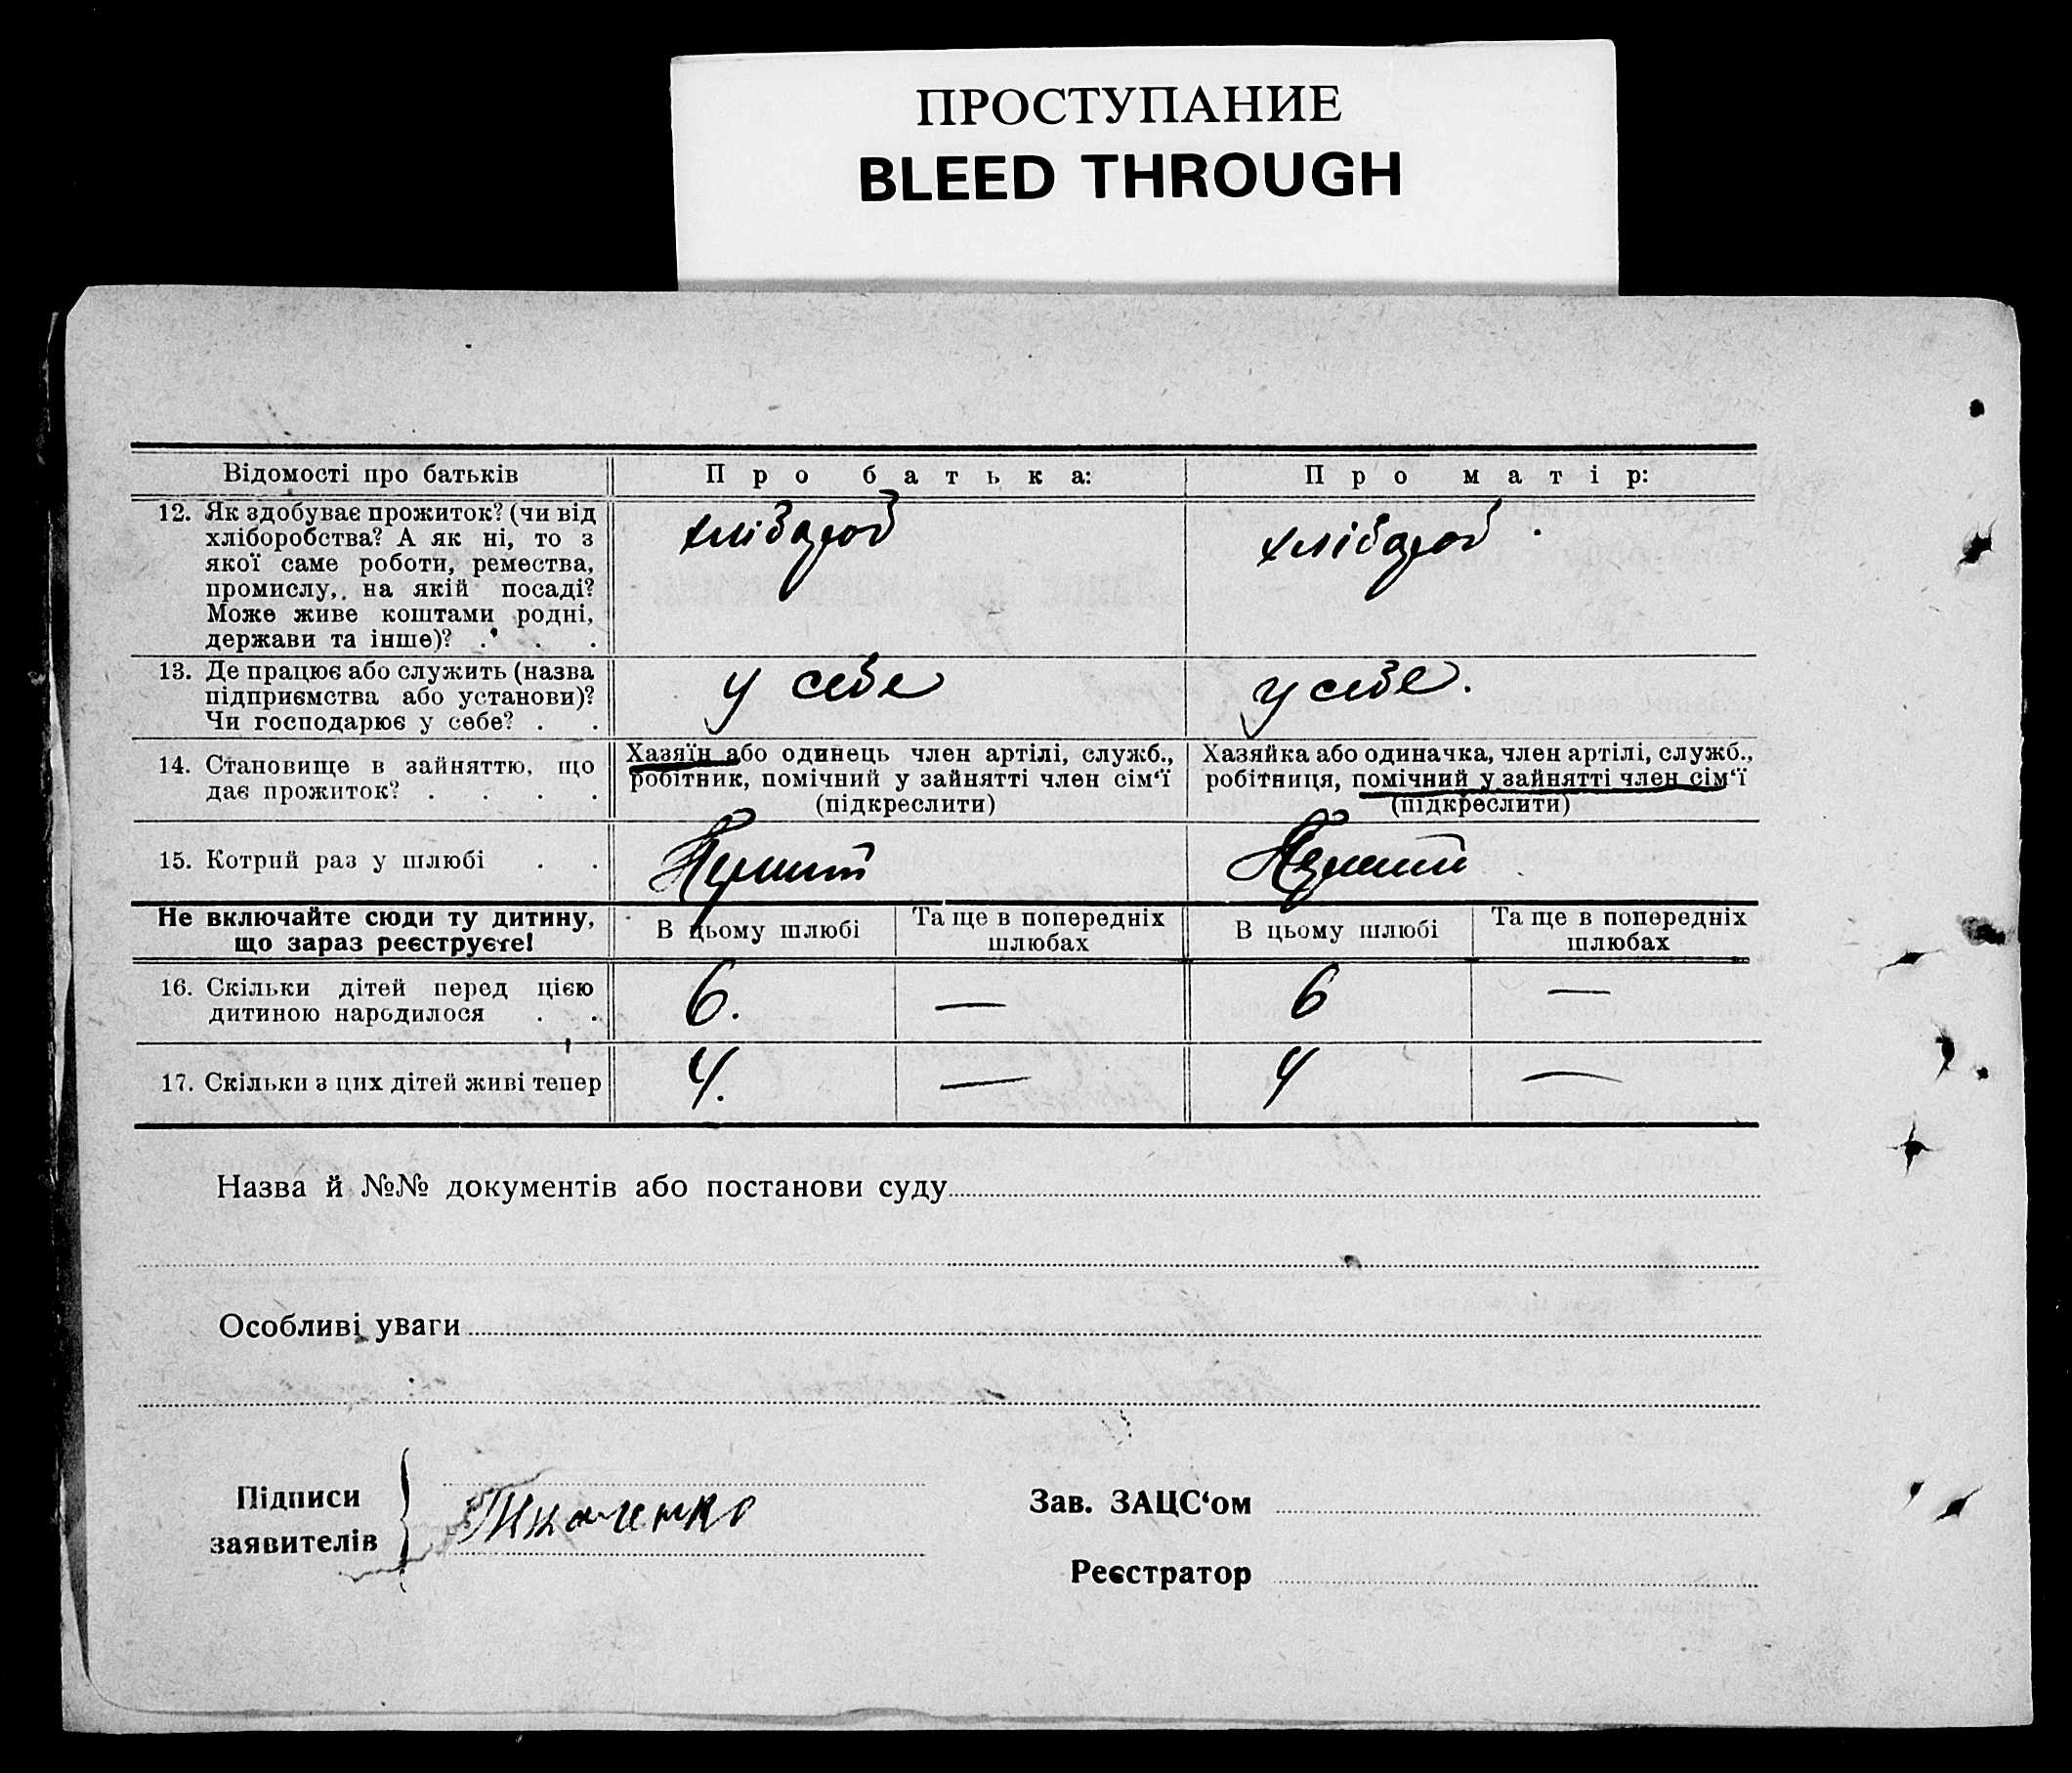 ПРОСТУПАНИЕ
BLEED THROUGH
Відомості про батьків
Про батька:
Про матір:
12. Як здобуває прожиток? (чи від
хліборобства? А як ні, то з
якої саме роботи, ремества,
промислу, на якій посаді?
Може живе коштами родні,
держави та інше)? . . .
хлібароб
хлібароб
13. Де працює або служить (назва
підприємства або установи)?
Чи господарює у себе? . .
у себе
у себе.
14. Становище в зайняттю, що
дає прожиток? . . . .
Хазяїн або одинець член артілі, служб.,
робітник, помічний у зайнятті член сім‘ї
(підкреслити)
Хазяйка або одиначка, член артілі, служб.,
робітниця, помічний у зайнятті член сім‘ї
(підкреслити)
15. Котрий раз у шлюбі . .
Не включайте сюди ту дитину,
що зараз реєструєте!
В цьому шлюбі
Та ще в попередніх
шлюбах
В цьому шлюбі
Та ще в попередніх
шлюбах
16. Скільки дітей перед цією
дитиною народилося . .
6.
—
6
—
17. Скільки з цих дітей живі тепер
4.
—
4
—
Назва й №№ документів або постанови суду
Особливі уваги
Підписи
заявителів
Ткаченко
Зав. ЗАЦС‘ом
Реєстратор